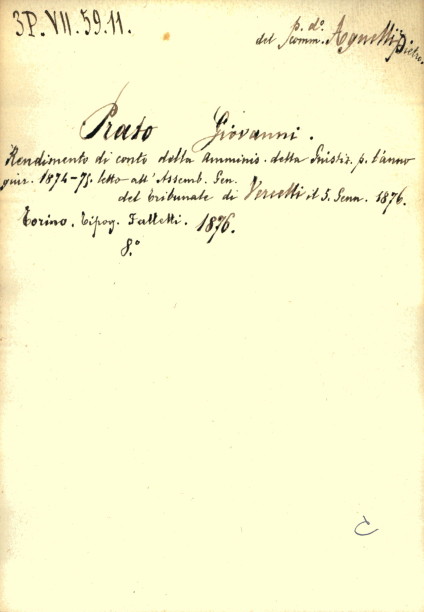 3P. VII. 59. 11.
p. d.º
del comm. Agnelli Pietro.
Prato Giovanni.
Rendimento di conto della Amminis. della Giustiz. p. l'anno
giur. 1874-75. letto all'Assemb. Gen.
del Tribunale di Vercelli il 5. Genn. 1876.
Torino. Tipog. Falletti. 1876.
8.º
C